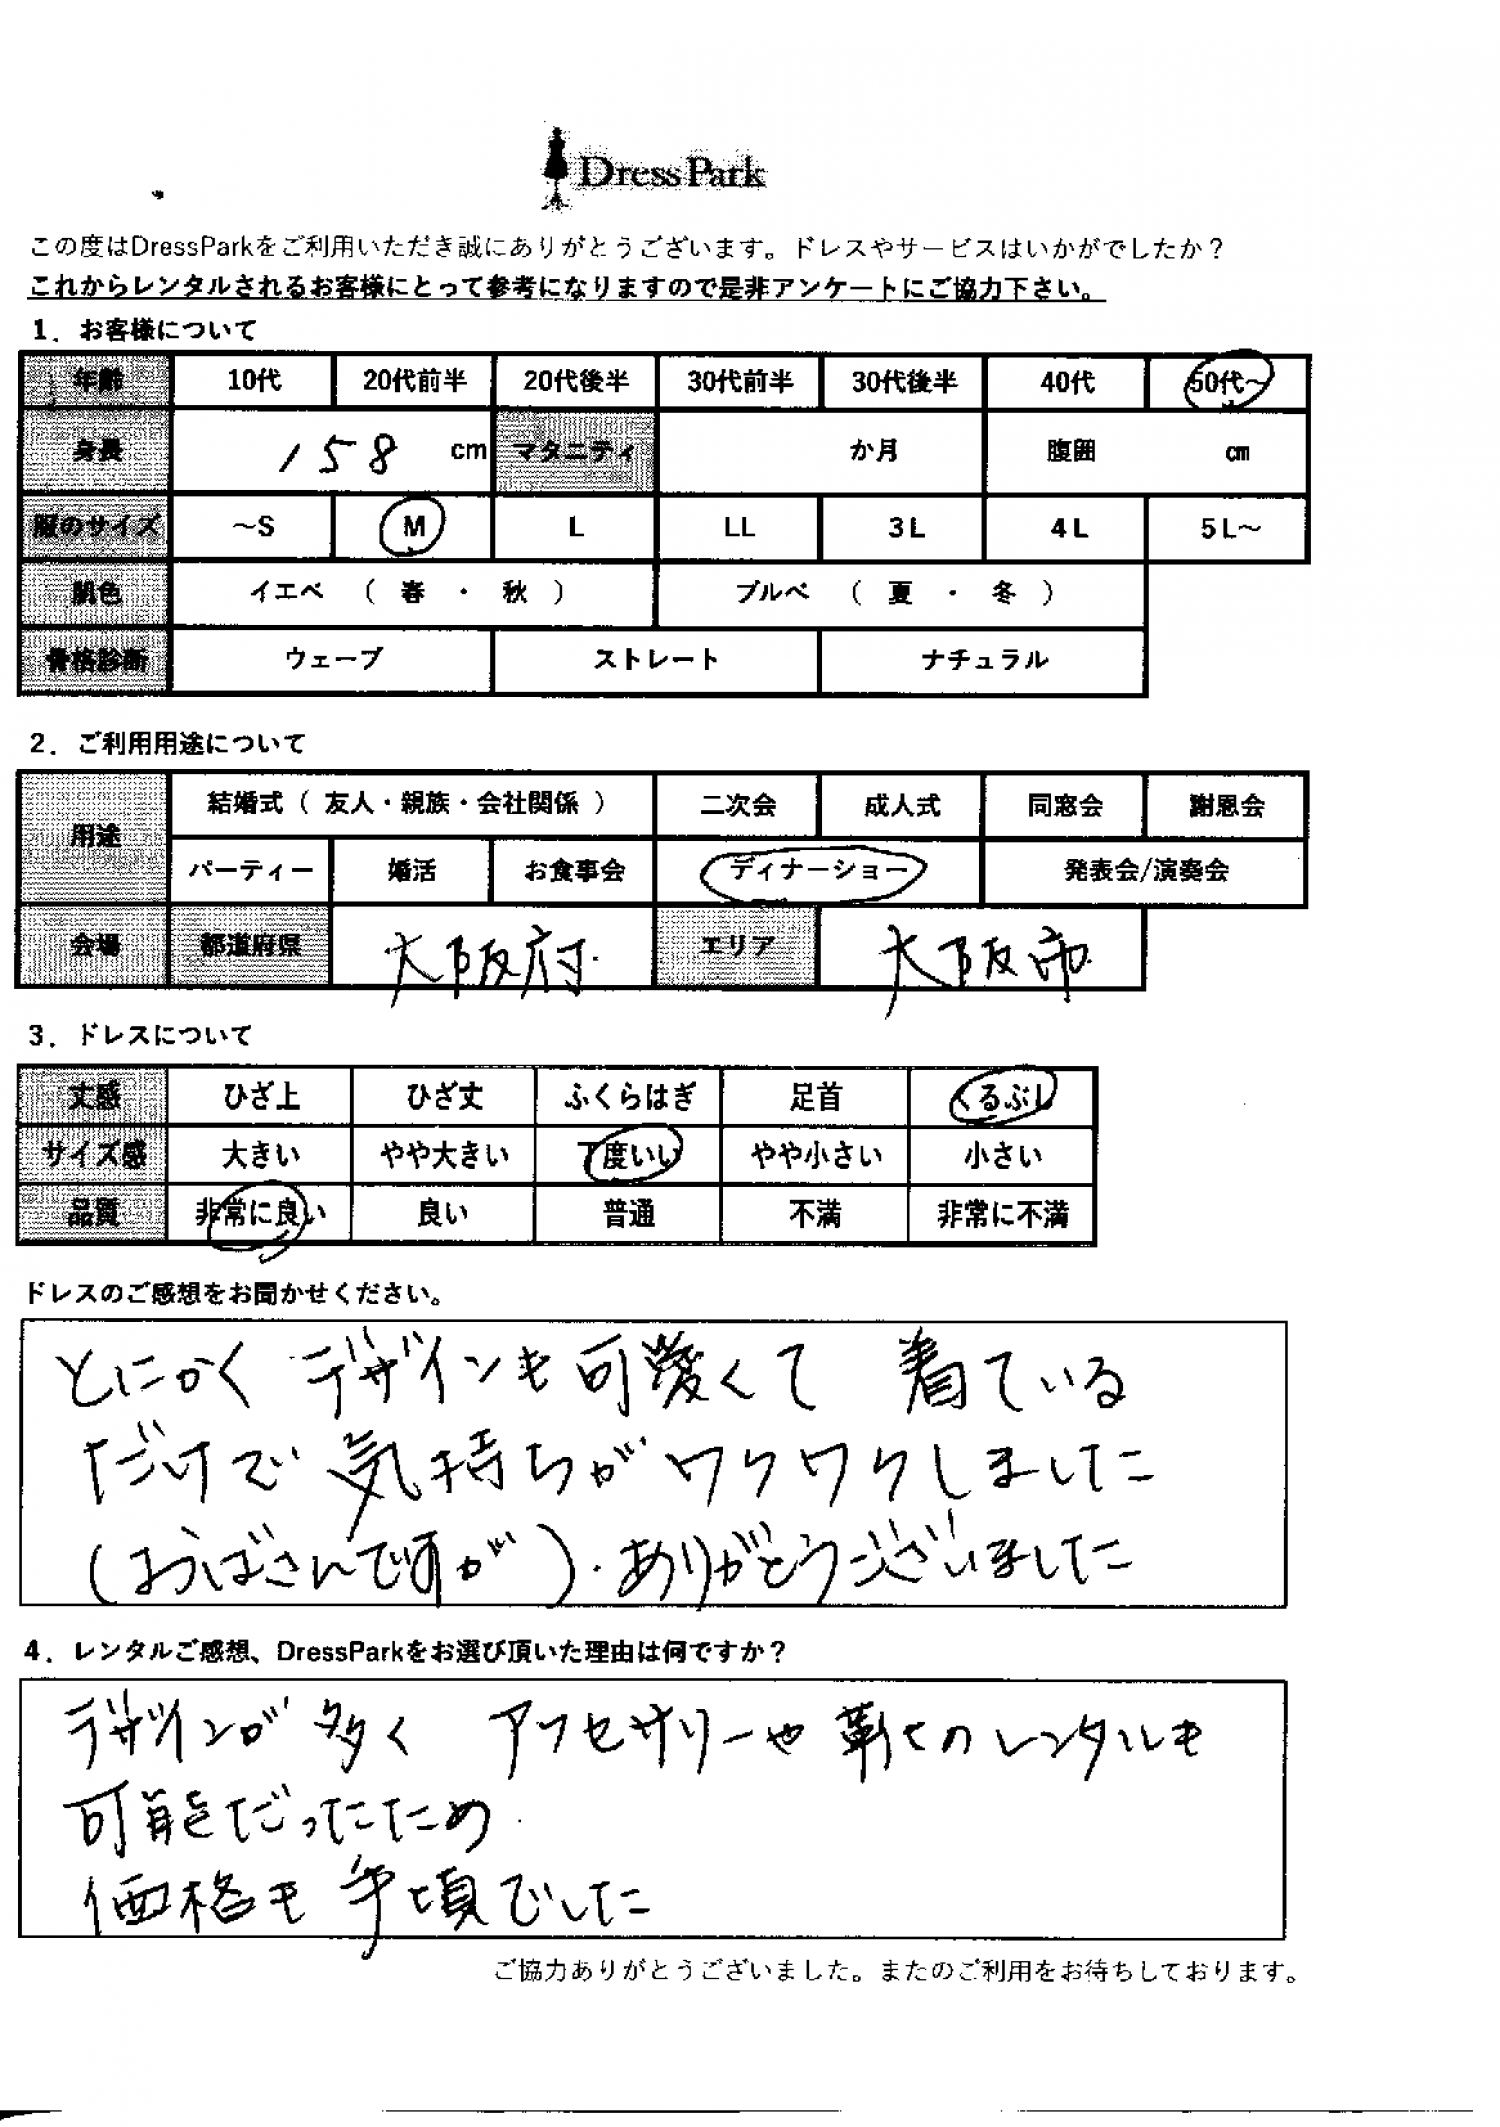 DressPark
この度はDressParkをご利用いただき誠にありがとうございます。ドレスやサービスはいかがでしたか？
これからレンタルされるお客様にとって参考になりますので是非アンケートにご協力下さい。
1．お客様について
年齢 10代 20代前半 20代後半 30代前半 30代後半 40代 50代～
身長 158 cm マタニティ か月 腹囲 cm
服のサイズ ～S M L LL 3L 4L 5L～
肌色 イエベ （ 春 ・ 秋 ） ブルベ （ 夏 ・ 冬 ）
骨格診断 ウェーブ ストレート ナチュラル
2．ご利用用途について
用途 結婚式（ 友人・親族・会社関係 ） 二次会 成人式 同窓会 謝恩会
パーティー 婚活 お食事会 ディナーショー 発表会/演奏会
会場 都道府県 大阪府 エリア 大阪市
3．ドレスについて
丈感 ひざ上 ひざ丈 ふくらはぎ 足首 くるぶし
サイズ感 大きい やや大きい 丁度いい やや小さい 小さい
品質 非常に良い 良い 普通 不満 非常に不満
ドレスのご感想をお聞かせください。
とにかく デザインも可愛くて 着ている
だけで 気持ちが ワクワクしました
（おばさんですが）．ありがとうございました
4．レンタルご感想、DressParkをお選び頂いた理由は何ですか？
デザインが 多く アクセサリーや 靴のレンタルも
可能だったため
価格も 手頃でした
ご協力ありがとうございました。またのご利用をお待ちしております。